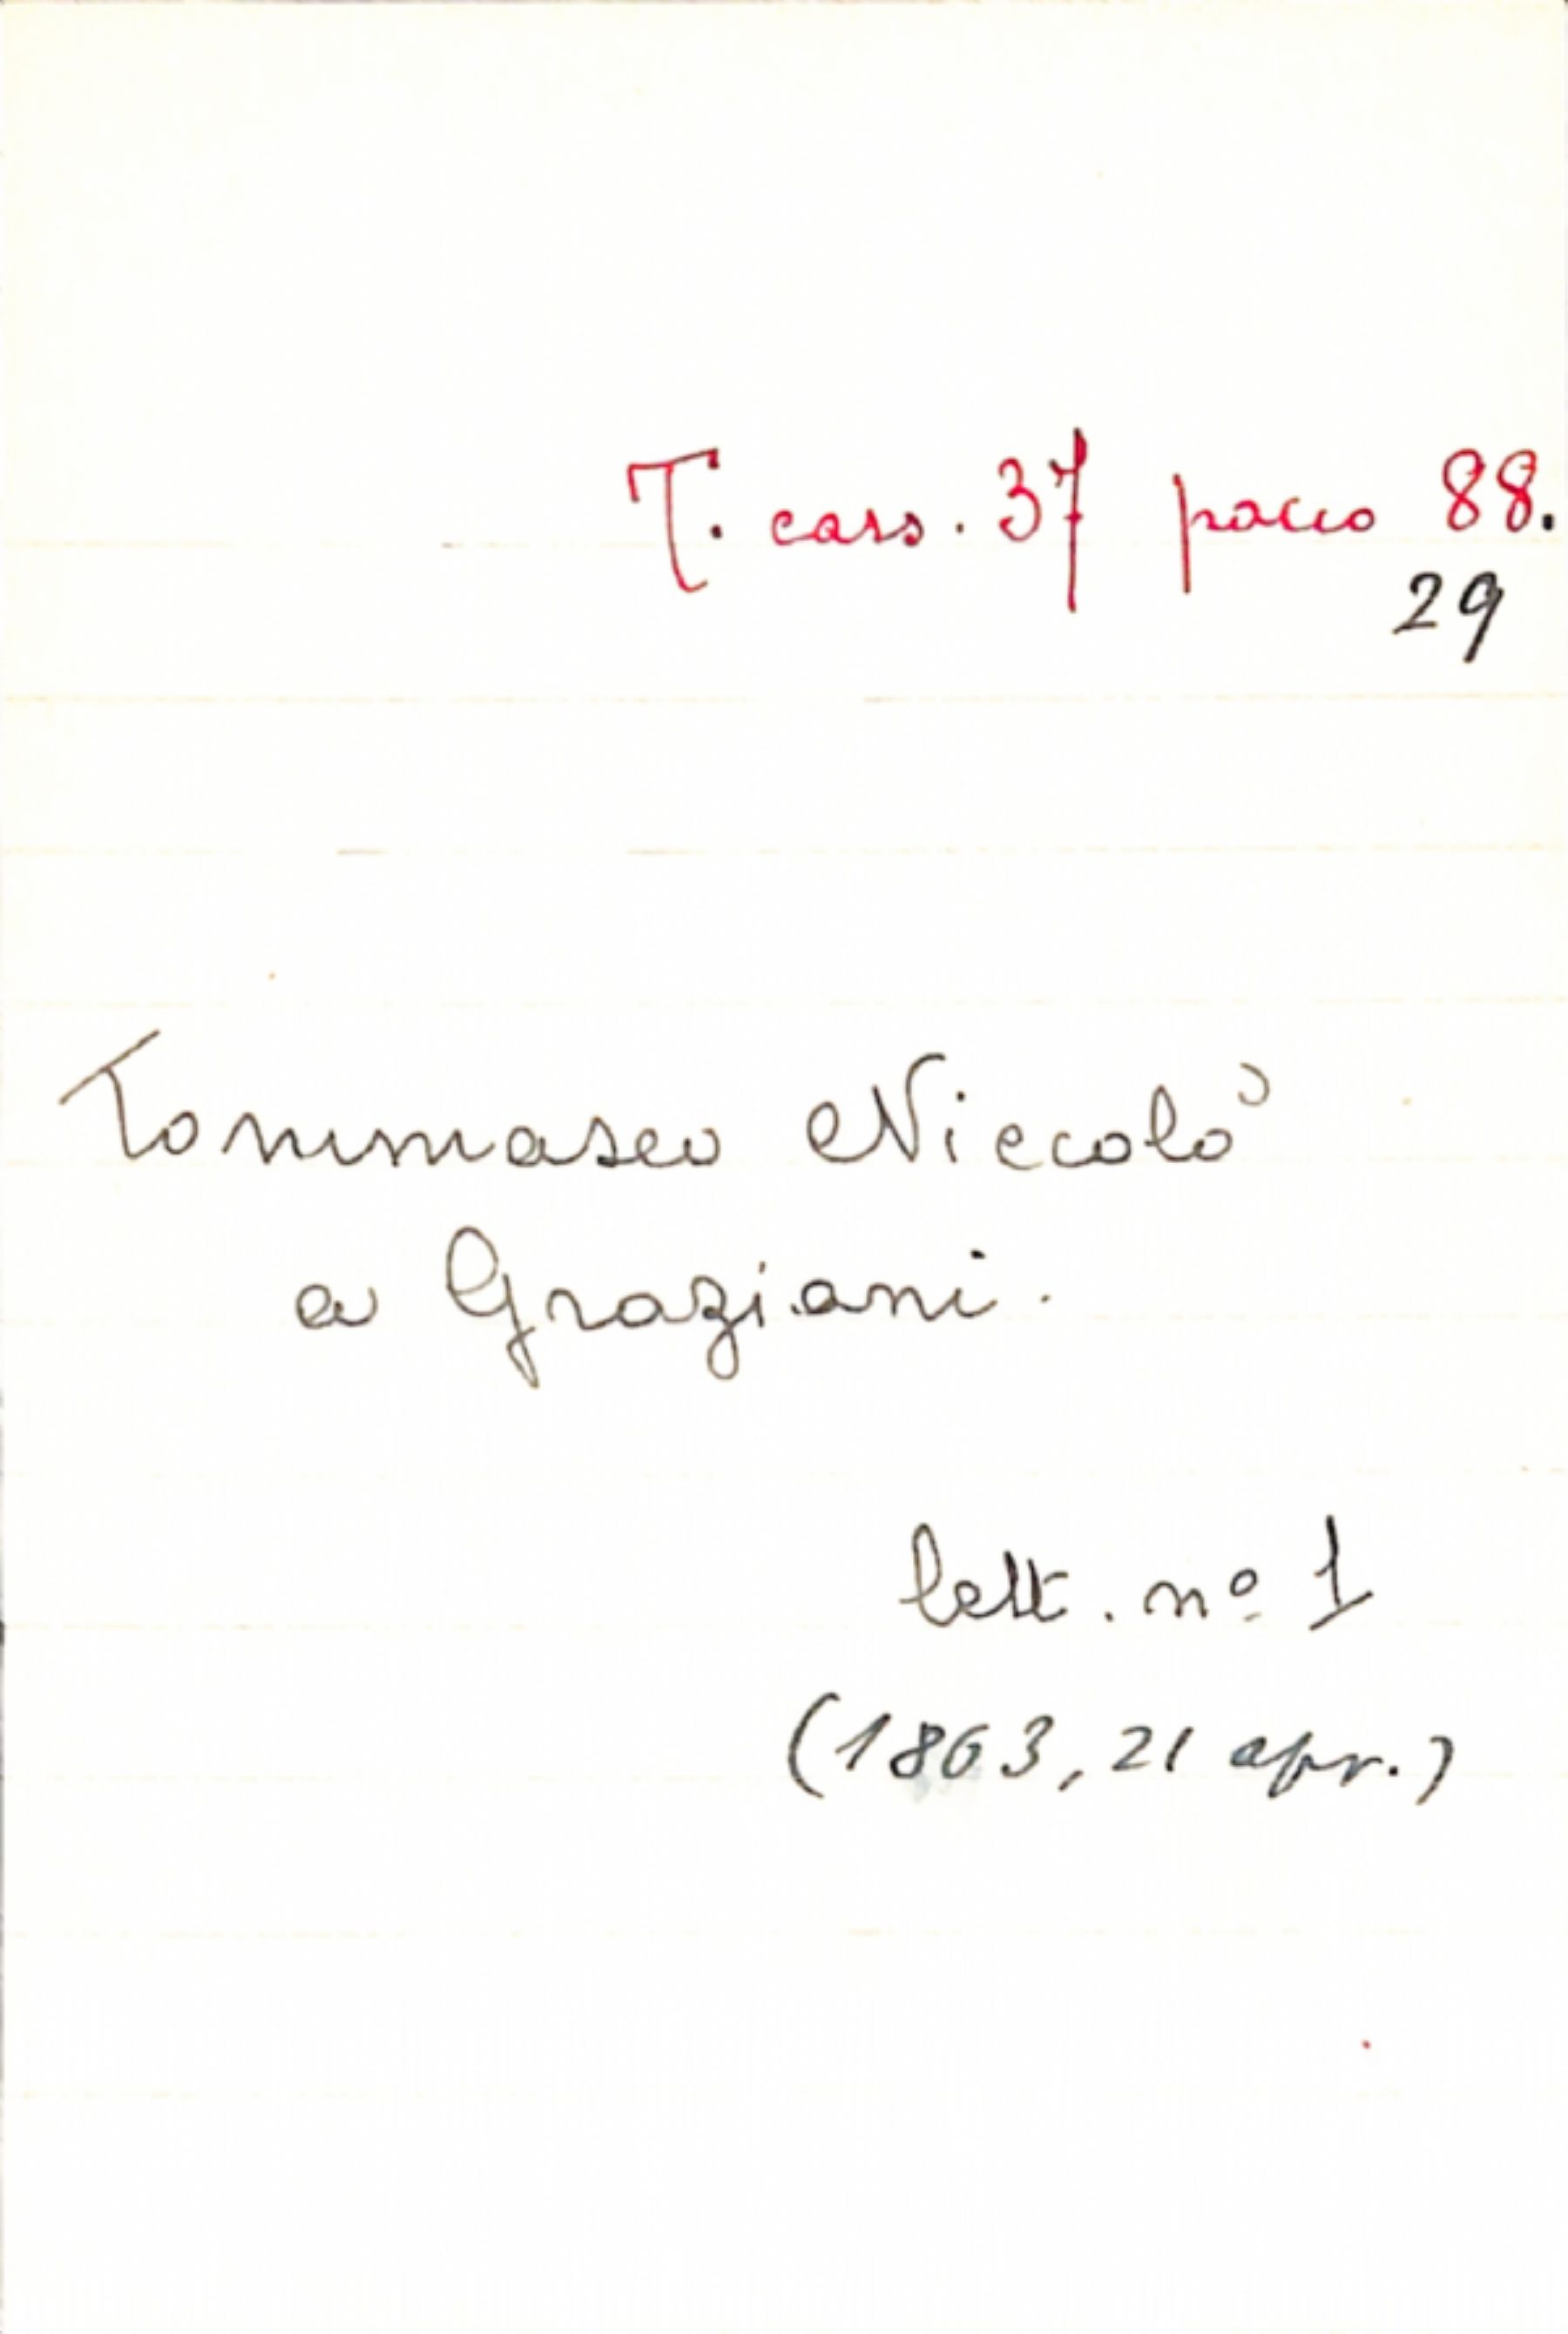 T. cass. 37 pacco 88.
29
Tommaseo Niccolò
a Graziani.
lett. nº 1
(1863, 21 apr.)